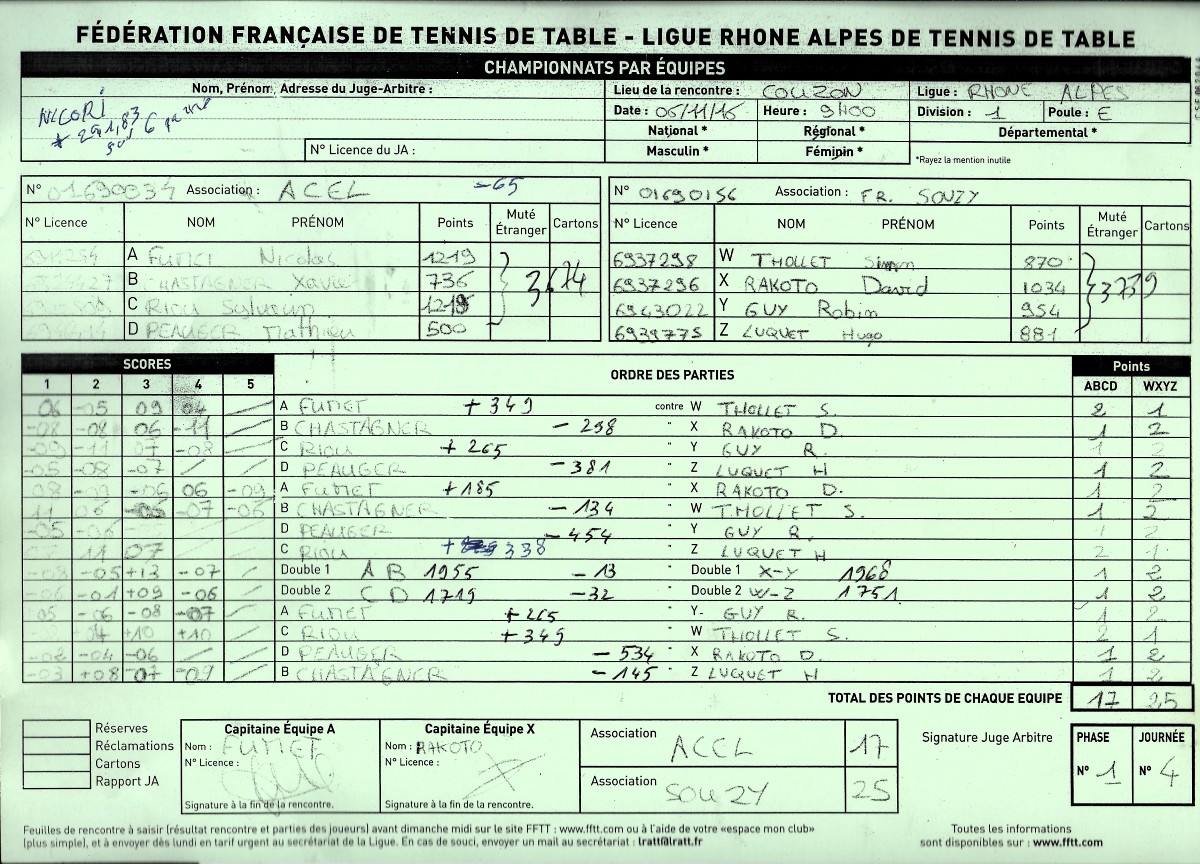 FÉDÉRATION FRANÇAISE DE TENNIS DE TABLE - LIGUE RHONE ALPES DE TENNIS DE TABLE
CHAMPIONNATS PAR ÉQUIPES
Nom, Prénom, Adresse du Juge-Arbitre :
NICORI
N° Licence du JA :
Lieu de la rencontre : COUZON
Ligue : RHONE ALPES
Date : 06/11/16 Heure : 9H00
Division : 1 Poule : E
National * Régional * Départemental *
Masculin * Féminin *
*Rayez la mention inutile
N° 01690034 Association : ACEL -65
N° Licence NOM PRÉNOM Points Muté Étranger Cartons
A FUMET Nicolas 1219
B CHASTAGNER Xavier 736
C Riou 1219
D PEAUGER Mathieu 500
3674
N° 01690156 Association : FR. SOUZY
N° Licence NOM PRÉNOM Points Muté Étranger Cartons
6937298 W THOLLET Simon 870
6937296 X RAKOTO David 1034
6943022 Y GUY Robin 954
6939775 Z LUQUET Hugo 881
3739
SCORES ORDRE DES PARTIES Points
1 2 3 4 5 ABCD WXYZ
06 -05 09 04 A FUMET +349 contre W THOLLET S. 2 1
-08 -08 06 -11 B CHASTAGNER -298 " X RAKOTO D. 1 2
-11 07 -08 C RIOU +265 " Y GUY R. 1 2
-05 -08 -07 D PEAUGER -381 " Z LUQUET H 1 2
08 -06 06 -09 A FUMET +185 " X RAKOTO D. 1 2
11 -07 -06 B CHASTAGNER -134 " W THOLLET S. 1 2
-05 -06 D PEAUGER -454 " Y GUY R. 1 2
11 07 C RIOU + 338 " Z LUQUET H 2 1
-08 -05 +13 -07 Double 1 A B 1955 -13 Double 1 X-Y 1968 1 2
-06 -01 +09 -06 Double 2 C D 1719 -32 Double 2 W-Z 1751 1 2
05 -06 -08 -07 A FUMET +265 " Y GUY R. 1 2
04 +10 +10 C RIOU +349 " W THOLLET S. 2 1
-02 -04 -06 D PEAUGER -534 " X RAKOTO D. 1 2
-03 +08 -07 -09 B CHASTAGNER -145 " Z LUQUET H 1 2
TOTAL DES POINTS DE CHAQUE EQUIPE 17 25
Réserves
Réclamations
Cartons
Rapport JA
Capitaine Équipe A
Nom : FUMET
N° Licence :
Signature à la fin de la rencontre.
Capitaine Équipe X
Nom : RAKOTO
N° Licence :
Signature à la fin de la rencontre.
Association ACEL 17
Association SOUZY 25
Signature Juge Arbitre
PHASE JOURNÉE
N° 1 N° 4
Feuilles de rencontre à saisir (résultat rencontre et parties des joueurs) avant dimanche midi sur le site FFTT : www.fftt.com ou à l'aide de votre «espace mon club»
(plus simple), et à envoyer dès lundi en tarif urgent au secrétariat de la Ligue. En cas de souci, envoyer un mail au secrétariat : lratt@lratt.fr
Toutes les informations
sont disponibles sur : www.fftt.com